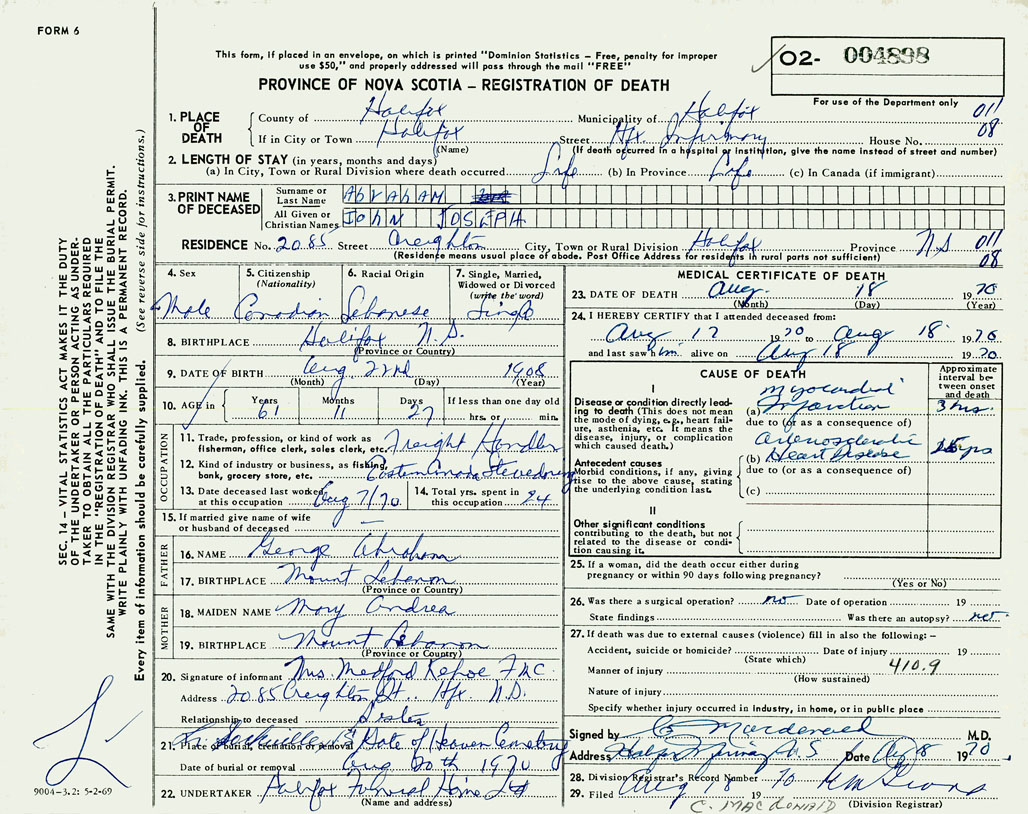 FORM 6
This form, if placed in an envelope, on which is printed "Dominion Statistics – Free, penalty for improper
use $50," and properly addressed will pass through the mail "FREE"
O2- 004898
For use of the Department only
PROVINCE OF NOVA SCOTIA – REGISTRATION OF DEATH
1. PLACE OF DEATH
County of Halifax Municipality of Halifax 011
If in City or Town Halifax Street Hfx Infirmary House No. 08
(Name) (If death occurred in a hospital or institution, give the name instead of street and number)
2. LENGTH OF STAY (in years, months and days)
(a) In City, Town or Rural Division where death occurred Life (b) In Province Life (c) In Canada (if immigrant)
3. PRINT NAME OF DECEASED
Surname or Last Name AbrahAM
All Given or Christian Names JohN JOSEPH
RESIDENCE No. 2085 Street Creighton City, Town or Rural Division Halifax Province N S 011
(Residence means usual place of abode. Post Office Address for residents in rural parts not sufficient) 08
4. Sex
Male
5. Citizenship
(Nationality)
Canadian
6. Racial Origin
Lebanese
7. Single, Married,
Widowed or Divorced
(write the word)
Single
8. BIRTHPLACE Halifax N.S.
(Province or Country)
9. DATE OF BIRTH Aug 22nd 1908
(Month) (Day) (Year)
10. AGE in Years Months Days If less than one day old
61 11 27 hrs. or min.
OCCUPATION
11. Trade, profession, or kind of work as
fisherman, office clerk, sales clerk, etc. Freight Handler
12. Kind of industry or business, as fishing,
bank, grocery store, etc. Eastern Canada Stevedoring
13. Date deceased last worked
at this occupation Aug 7/70
14. Total yrs. spent in
this occupation 24
15. If married give name of wife
or husband of deceased —
FATHER
16. NAME George Abraham
17. BIRTHPLACE Mount Lebanon
(Province or Country)
MOTHER
18. MAIDEN NAME Mary Andrea
19. BIRTHPLACE Mount Lebanon
(Province or Country)
20. Signature of informant Mrs. Medford Kehoe
Address 2085 Creighton St. Hfx N.S.
Relationship to deceased Sister
21. Place of burial, cremation or removal Gate of Heaven Cemetery
Sackville
Date of burial or removal Aug 20th 1970
22. UNDERTAKER Halifax Funeral Home Ltd
(Name and address)
MEDICAL CERTIFICATE OF DEATH
23. DATE OF DEATH Aug. 18 1970
(Month) (Day) (Year)
24. I HEREBY CERTIFY that I attended deceased from:
Aug 17 1970 to Aug 18 1970
and last saw him alive on Aug 18 1970
CAUSE OF DEATH
Approximate
interval be-
tween onset
and death
I
Disease or condition directly lead-
ing to death (This does not mean
the mode of dying, e.g., heart fail-
ure, asthenia, etc. It means the
disease, injury, or complication
which caused death.)
Myocardial
(a) Infarction 3 hrs.
due to (or as a consequence of)
Arteriosclerotic
(b) Heart Disease 15 yrs
due to (or as a consequence of)
(c)
Antecedent causes
Morbid conditions, if any, giving
rise to the above cause, stating
the underlying condition last.
II
Other significant conditions
contributing to the death, but not
related to the disease or condi-
tion causing it.
25. If a woman, did the death occur either during
pregnancy or within 90 days following pregnancy?
(Yes or No)
26. Was there a surgical operation? no Date of operation 19
State findings Was there an autopsy? no
27. If death was due to external causes (violence) fill in also the following: –
Accident, suicide or homicide? Date of injury 19
(State which)
Manner of injury 410.9
(How sustained)
Nature of injury
Specify whether injury occurred in industry, in home, or in public place
Signed by C Macdonald M.D.
Address Halifax Infirmary N.S Date Aug 18 1970
28. Division Registrar's Record Number
29. Filed Aug 18 1970
C. MACDONALD (Division Registrar)
SEC. 14 – VITAL STATISTICS ACT MAKES IT THE DUTY
OF THE UNDERTAKER OR PERSON ACTING AS UNDER-
TAKER TO OBTAIN ALL THE PARTICULARS REQUIRED
IN THE "REGISTRATION OF DEATH" AND TO FILE THE
SAME WITH THE DIVISION REGISTRAR WHO SHALL ISSUE THE BURIAL PERMIT.
WRITE PLAINLY WITH UNFADING INK. THIS IS A PERMANENT RECORD.
Every item of information should be carefully supplied. (See reverse side for instructions.)
9004-3.2: 5-2-69